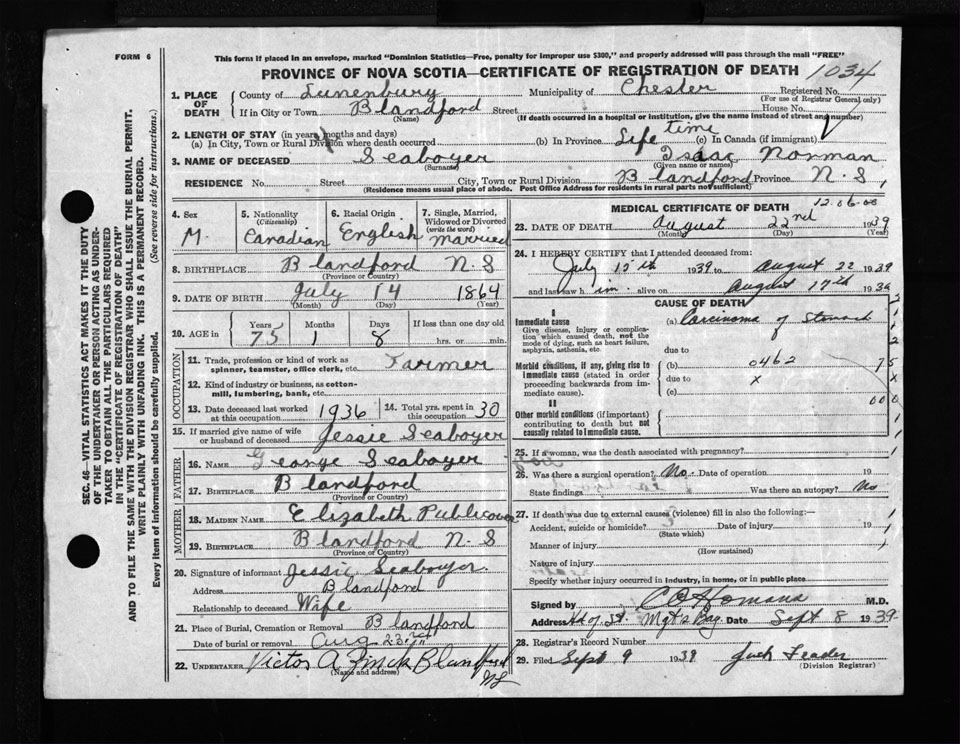 FORM 6
This form if placed in an envelope, marked "Dominion Statistics—Free, penalty for improper use $300," and properly addressed will pass through the mail "FREE"
PROVINCE OF NOVA SCOTIA—CERTIFICATE OF REGISTRATION OF DEATH 1034
1. PLACE OF DEATH
County of Lunenburg Municipality of Chester Registered No.
(For use of Registrar General only)
If in City or Town Blandford Street House No.
(Name) (If death occurred in a hospital or institution, give the name instead of street and number)
2. LENGTH OF STAY (in years, months and days)
(a) In City, Town or Rural Division where death occurred (b) In Province Life time (c) In Canada (if immigrant)
3. NAME OF DECEASED Seaboyer Isaac Norman
(Surname) (Given name or names)
RESIDENCE No. Street City, Town or Rural Division Blandford Province N.S.
(Residence means usual place of abode. Post Office Address for residents in rural parts not sufficient)
4. Sex M.
5. Nationality (Citizenship) Canadian
6. Racial Origin English
7. Single, Married, Widowed or Divorced (write the word) Married
8. BIRTHPLACE Blandford N.S
(Province or Country)
9. DATE OF BIRTH July 14 1864
(Month) (Day) (Year)
10. AGE in Years 75 Months 1 Days 8 If less than one day old hrs. or min.
OCCUPATION
11. Trade, profession or kind of work as spinner, teamster, office clerk, etc. Farmer
12. Kind of industry or business, as cotton-mill, lumbering, bank, etc.
13. Date deceased last worked at this occupation 1936
14. Total yrs. spent in this occupation 30
15. If married give name of wife or husband of deceased Jessie Seaboyer
FATHER
16. NAME George Seaboyer
17. BIRTHPLACE Blandford
(Province or Country)
MOTHER
18. MAIDEN NAME Elizabeth Publicover
19. BIRTHPLACE Blandford N.S
(Province or Country)
20. Signature of informant Jessie Seaboyer.
Address Blandford
Relationship to deceased Wife
21. Place of Burial, Cremation or Removal Blandford
Date of burial or removal Aug 23rd
22. UNDERTAKER Victor A Zinck Blandford
(Name and address) NS
MEDICAL CERTIFICATE OF DEATH
23. DATE OF DEATH August 22nd 1939
(Month) (Day) (Year)
24. I HEREBY CERTIFY that I attended deceased from:
July 15th 1939 to August 22 1939
and last saw him alive on August 17th 1939
CAUSE OF DEATH
I
Immediate cause
Give disease, injury or complication which caused death, not the mode of dying, such as heart failure, asphyxia, asthenia, etc.
(a) Carcinoma of Stomach
due to
Morbid conditions, if any, giving rise to immediate cause (stated in order proceeding backwards from immediate cause).
(b) 0462 75
due to x x
(c) 000
II
Other morbid conditions (if important) contributing to death but not causally related to immediate cause.
25. If a woman, was the death associated with pregnancy?
26. Was there a surgical operation? No. Date of operation 19
State findings Was there an autopsy? No
27. If death was due to external causes (violence) fill in also the following:—
Accident, suicide or homicide? Date of injury 19
(State which)
Manner of injury
(How sustained)
Nature of injury
Specify whether injury occurred in industry, in home, or in public place
Signed by M.D.
Address Hd of St. Mgt's Bay Date Sept 8 1939
28. Registrar's Record Number
29. Filed Sept 9 1939
(Division Registrar)
SEC. 46—VITAL STATISTICS ACT MAKES IT THE DUTY OF THE UNDERTAKER OR PERSON ACTING AS UNDERTAKER TO OBTAIN ALL THE PARTICULARS REQUIRED IN THE "CERTIFICATE OF REGISTRATION OF DEATH" AND TO FILE THE SAME WITH THE DIVISION REGISTRAR WHO SHALL ISSUE THE BURIAL PERMIT.
WRITE PLAINLY WITH UNFADING INK. THIS IS A PERMANENT RECORD.
Every item of information should be carefully supplied. (See reverse side for instructions.)